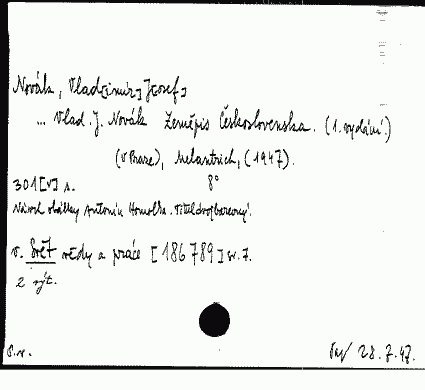 Novák, Vlad[imír] J[osef]
... Vlad. J. Novák Zeměpis Československa. (1. vydání)
(V Praze), Melantrich, (1947).
301 [V] s. 8°
Návrh obálky Antonín Homolka. Titul dvojbarevný.
v. Svět vědy a práce [186789] sv. 7.
2 výt.
28.7.47.